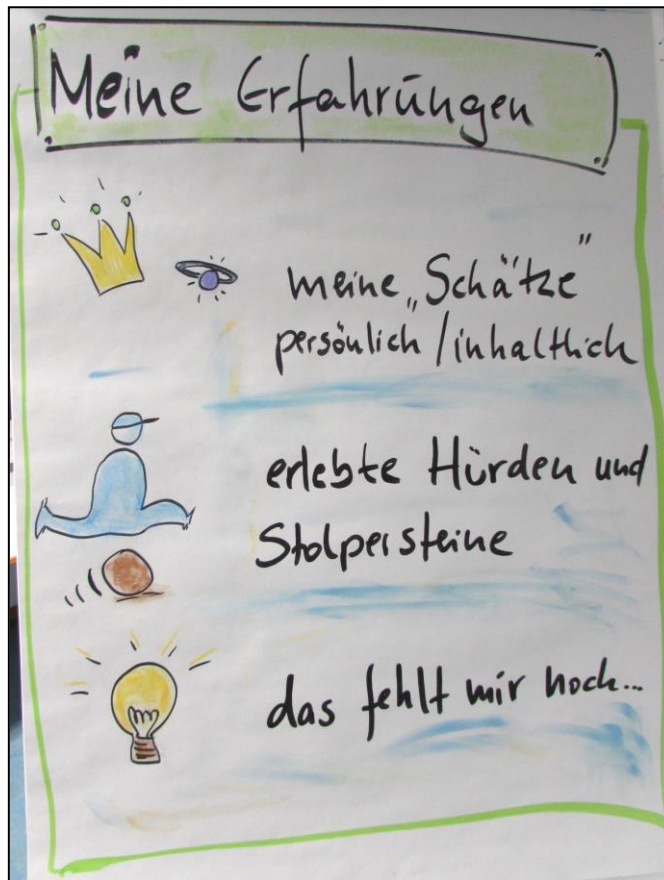 Meine Erfahrungen
meine „Schätze"
persönlich/inhaltlich
erlebte Hürden und
Stolpersteine
das fehlt mir noch...